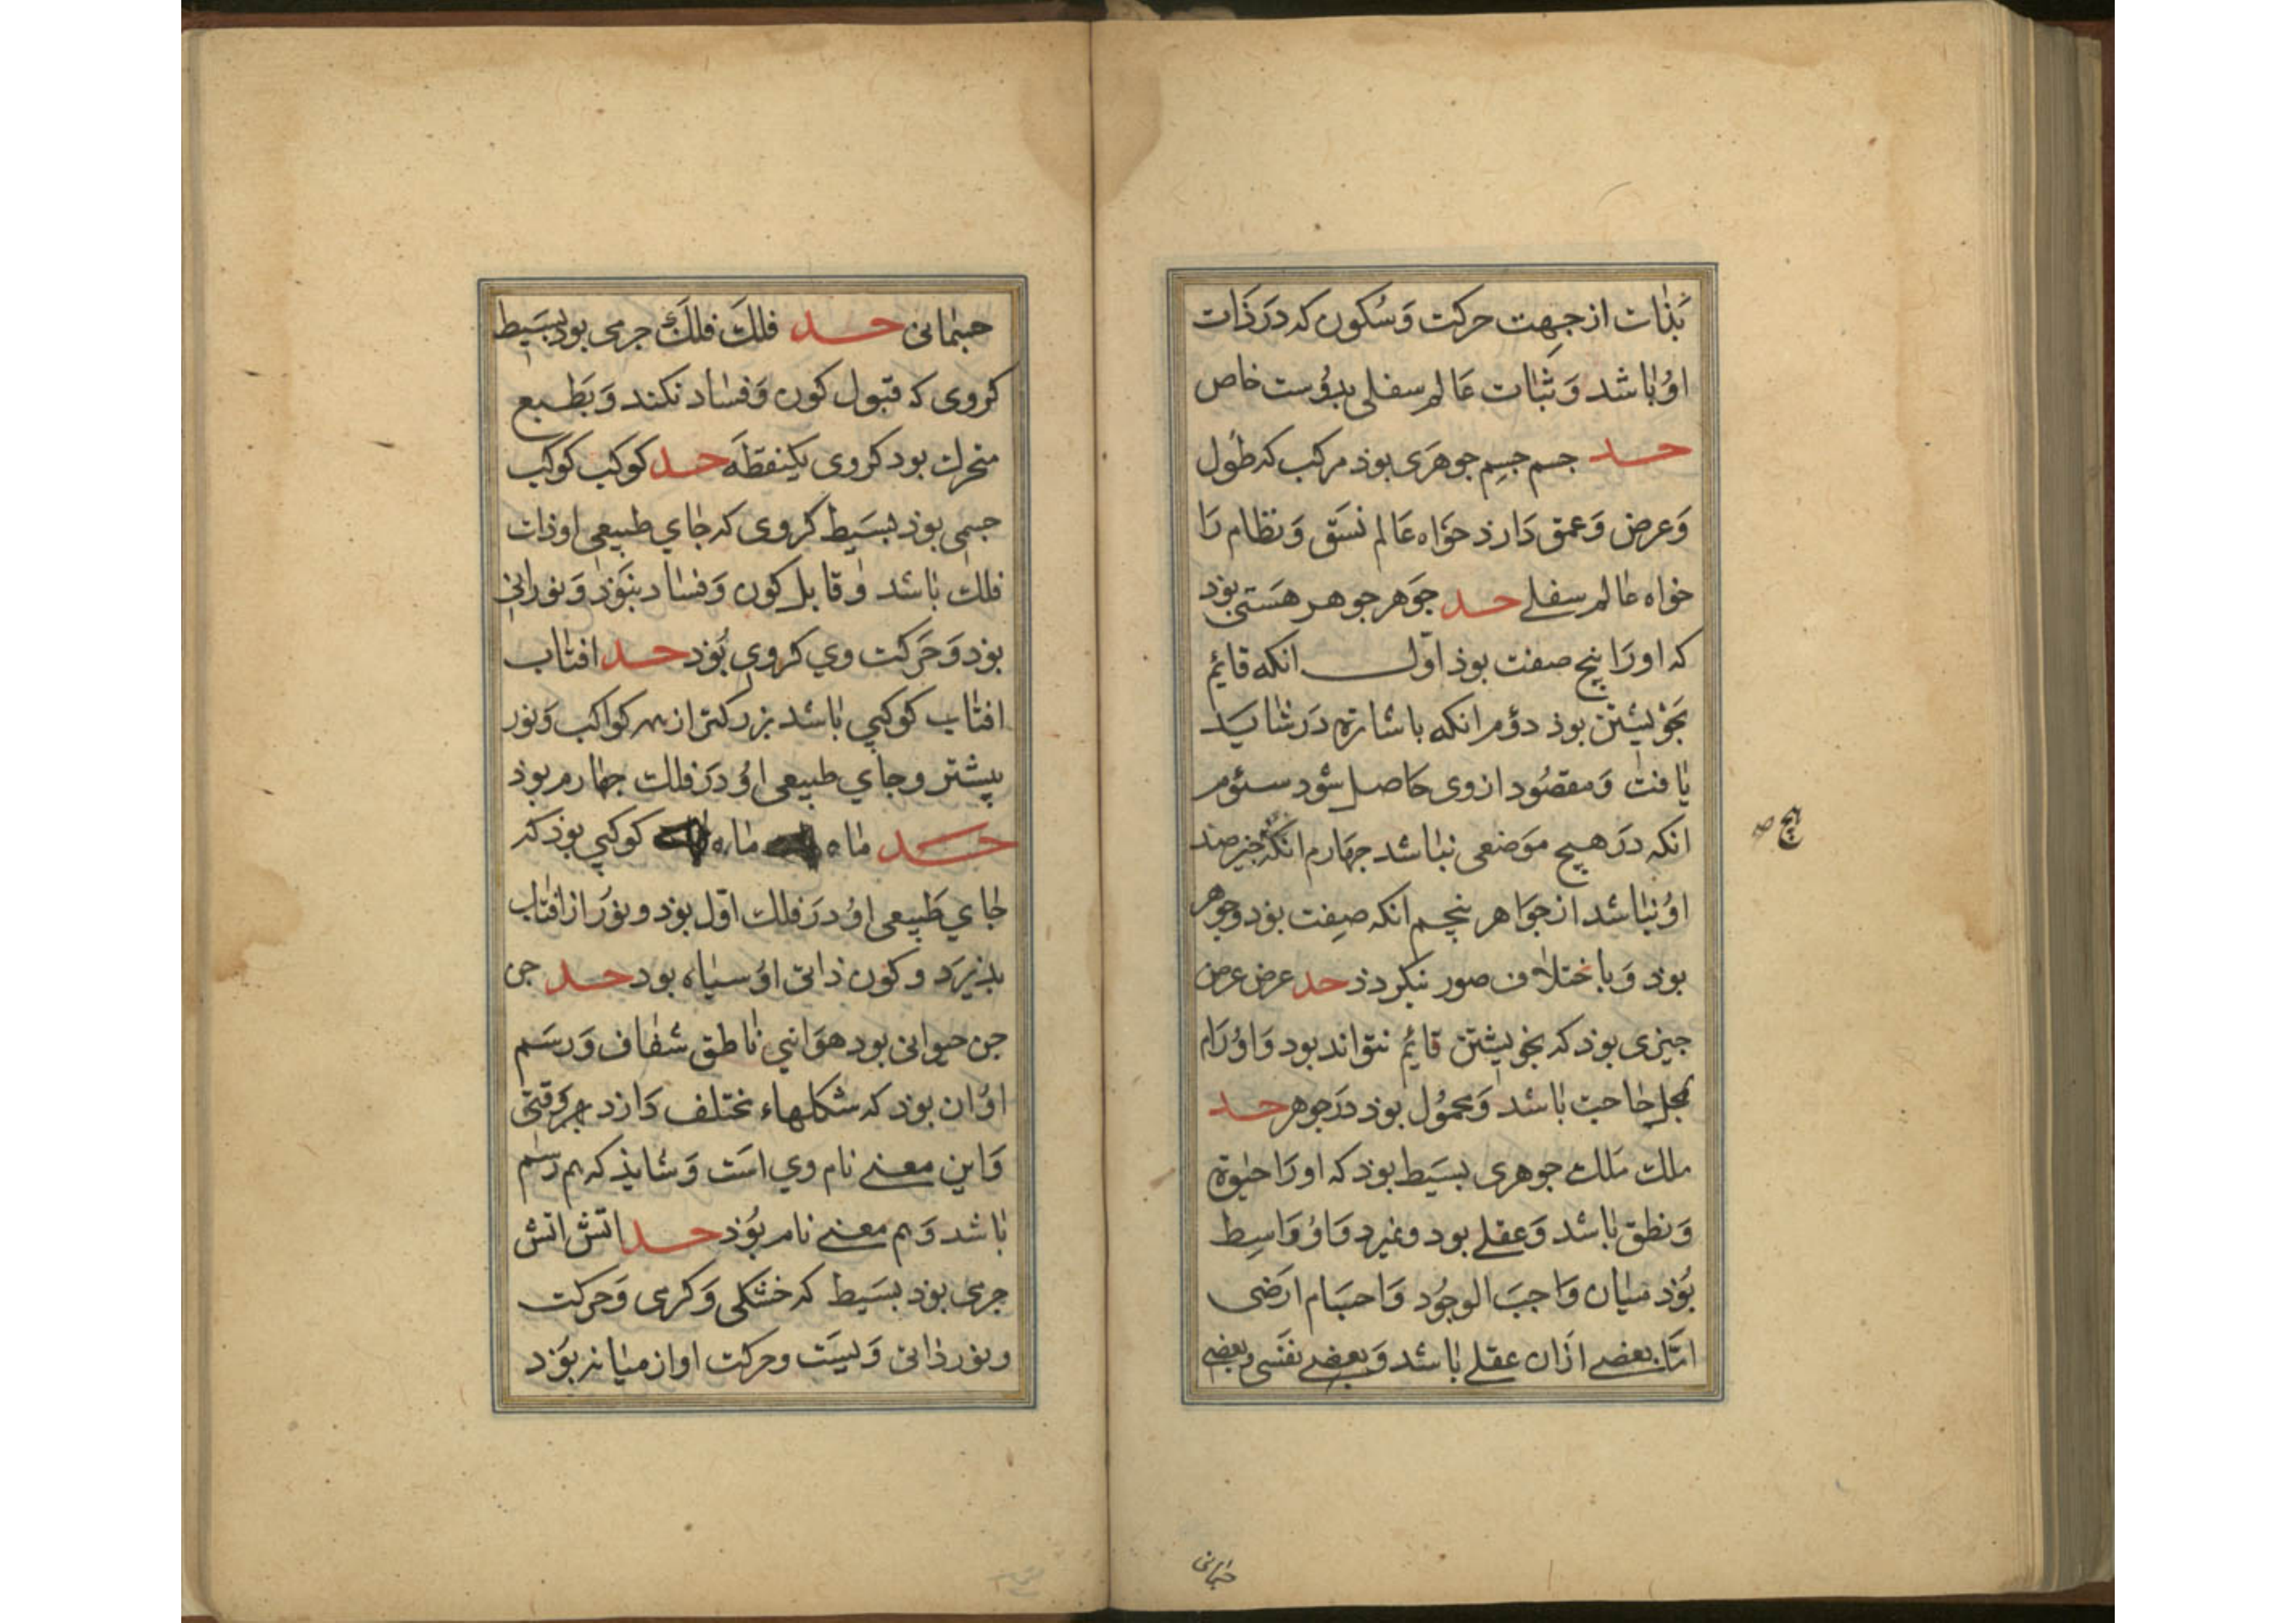 بذات از جهت حرکت و سکون که در ذات
او باشد و ثبات عالم سفلی بدوست خاص
حد جسم جسم جوهری بوذ مرکب که طول
و عرض و عمق دارذ خواه عالم نسق و نظام را
خواه عالم سفلے حد جوهر جوهر هستی بوذ
که او را پنج صفت بوذ اول انکه قائم
بخویشتن بوذ دؤم انکه باشارة در شاید
یافت و مقصود از وی حاصل شود سئوم
انکه در هیچ موضعی نباشد جهارم انکه ضد
هیچ صح
او نباشد از جواهر پنجم انکه صفت بود و جوهر
بوذ و باختلاف صور نکردذ حد عرض عرض
جیزی بوذ که بخویشتن قائم نتواند بود و او را
بمحل حاجت باشد و محمول بوذ در جوهر حد
ملک ملک جوهری بسیط بوذ که او را حیوة
و نطق باشد و عقلے بود و نمیرد و او واسط
بوذ میان واجب الوجود و اجسام ارضی
امّا بعضے ازان عقلے باشد و بعضے نفسی و بعضے
جسمانی
جسمانی حد فلک فلک جرمی بود بسیط
کروی که قبول کون و فساد نکند و بطبع
متحرک بود کروی یکنقطه حد کوکب کوکب
جسمی بوذ بسیط کروی که جای طبیعی او ذات
فلک باشد و قابل کون و فساد نبوذ و نورانی
بوذ و حرکت وی کروی بوذ حد افتاب
افتاب کوکبی باشد بزرکتر از همه کواکب و نور
بیشتر و جای طبیعی او در فلک جهارم بوذ
حد ماه ماه کوکبی بوذ که
جای طبیعی او در فلک اول بوذ و نور از افتاب
بذیرد و کون ذاتی او سیاه بود حد جن
جن حیوانی بود هوائی ناطق شفاف و رسم
او ان بوذ که شکلهاء مختلف دارد هر وقتی
و این معنے نام وی است و شایذ که هم رسم
باشد و هم معنے نام بوذ حد اتش اتش
جرمی بوذ بسیط که خشکی و کرمی و حرکت
و نور ذاتی ویست و حرکت او از میانه بوذ